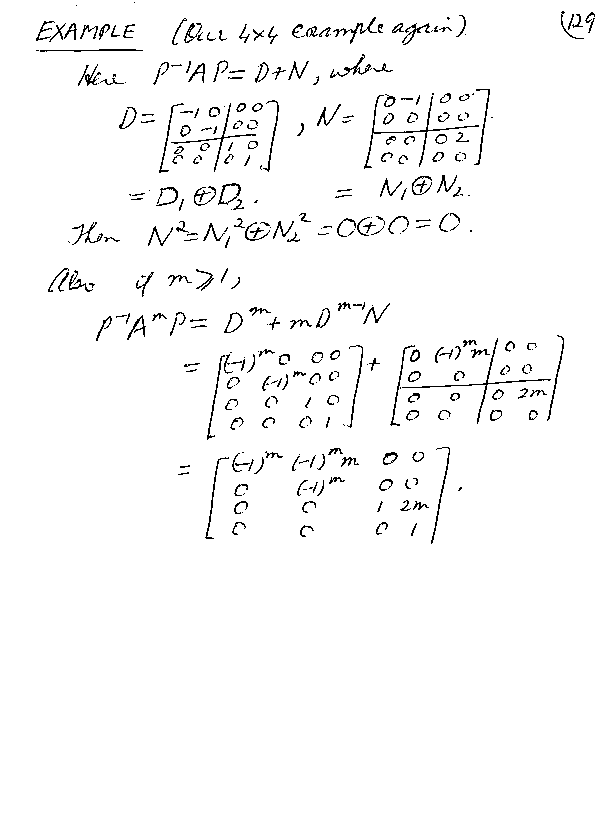 EXAMPLE (Our 4×4 example again) (129
Here P⁻¹AP = D+N, where
D = [-1 0 | 0 0; 0 -1 | 0 0; 0 0 | 1 0; 0 0 | 0 1], N = [0 -1 | 0 0; 0 0 | 0 0; 0 0 | 0 2; 0 0 | 0 0].
= D₁⊕D₂. = N₁⊕N₂.
Then N² = N₁²⊕N₂² = 0⊕0 = 0.
Also if m ⩾ 1,
P⁻¹AᵐP = Dᵐ + mDᵐ⁻¹N
= [(-1)ᵐ 0 0 0; 0 (-1)ᵐ 0 0; 0 0 1 0; 0 0 0 1] + [0 (-1)ᵐm | 0 0; 0 0 | 0 0; 0 0 | 0 2m; 0 0 | 0 0]
= [(-1)ᵐ (-1)ᵐm 0 0; 0 (-1)ᵐ 0 0; 0 0 1 2m; 0 0 0 1].